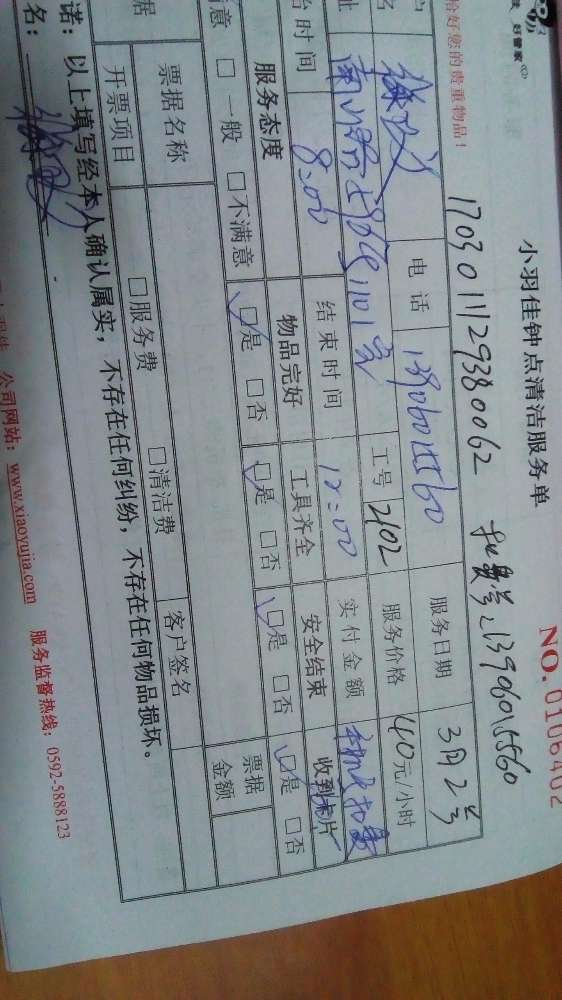 好管家
NO.0106402
小羽佳钟点清洁服务单
恰好您的贵重物品!
17030111129380062 扣费号:13906015560
电话 13906015560 服务日期 3月2号
1101室 工号 2102 服务价格 40元/小时
时间 8:00 结束时间 12:00 实付金额
服务态度 物品完好 工具齐全 安全结束 收到卡片
意 □ 一般 □ 不满意 □是 □否 □是 □否 □是 □否 □是 □否
据 票据名称 客户签名 票据金额
开票项目 □服务费 □清洁费
诺:以上填写经本人确认属实,不存在任何纠纷,不存在任何物品损坏。
名:
公司网站:www.xiaoyujia.com 服务监督热线:0592-5888123